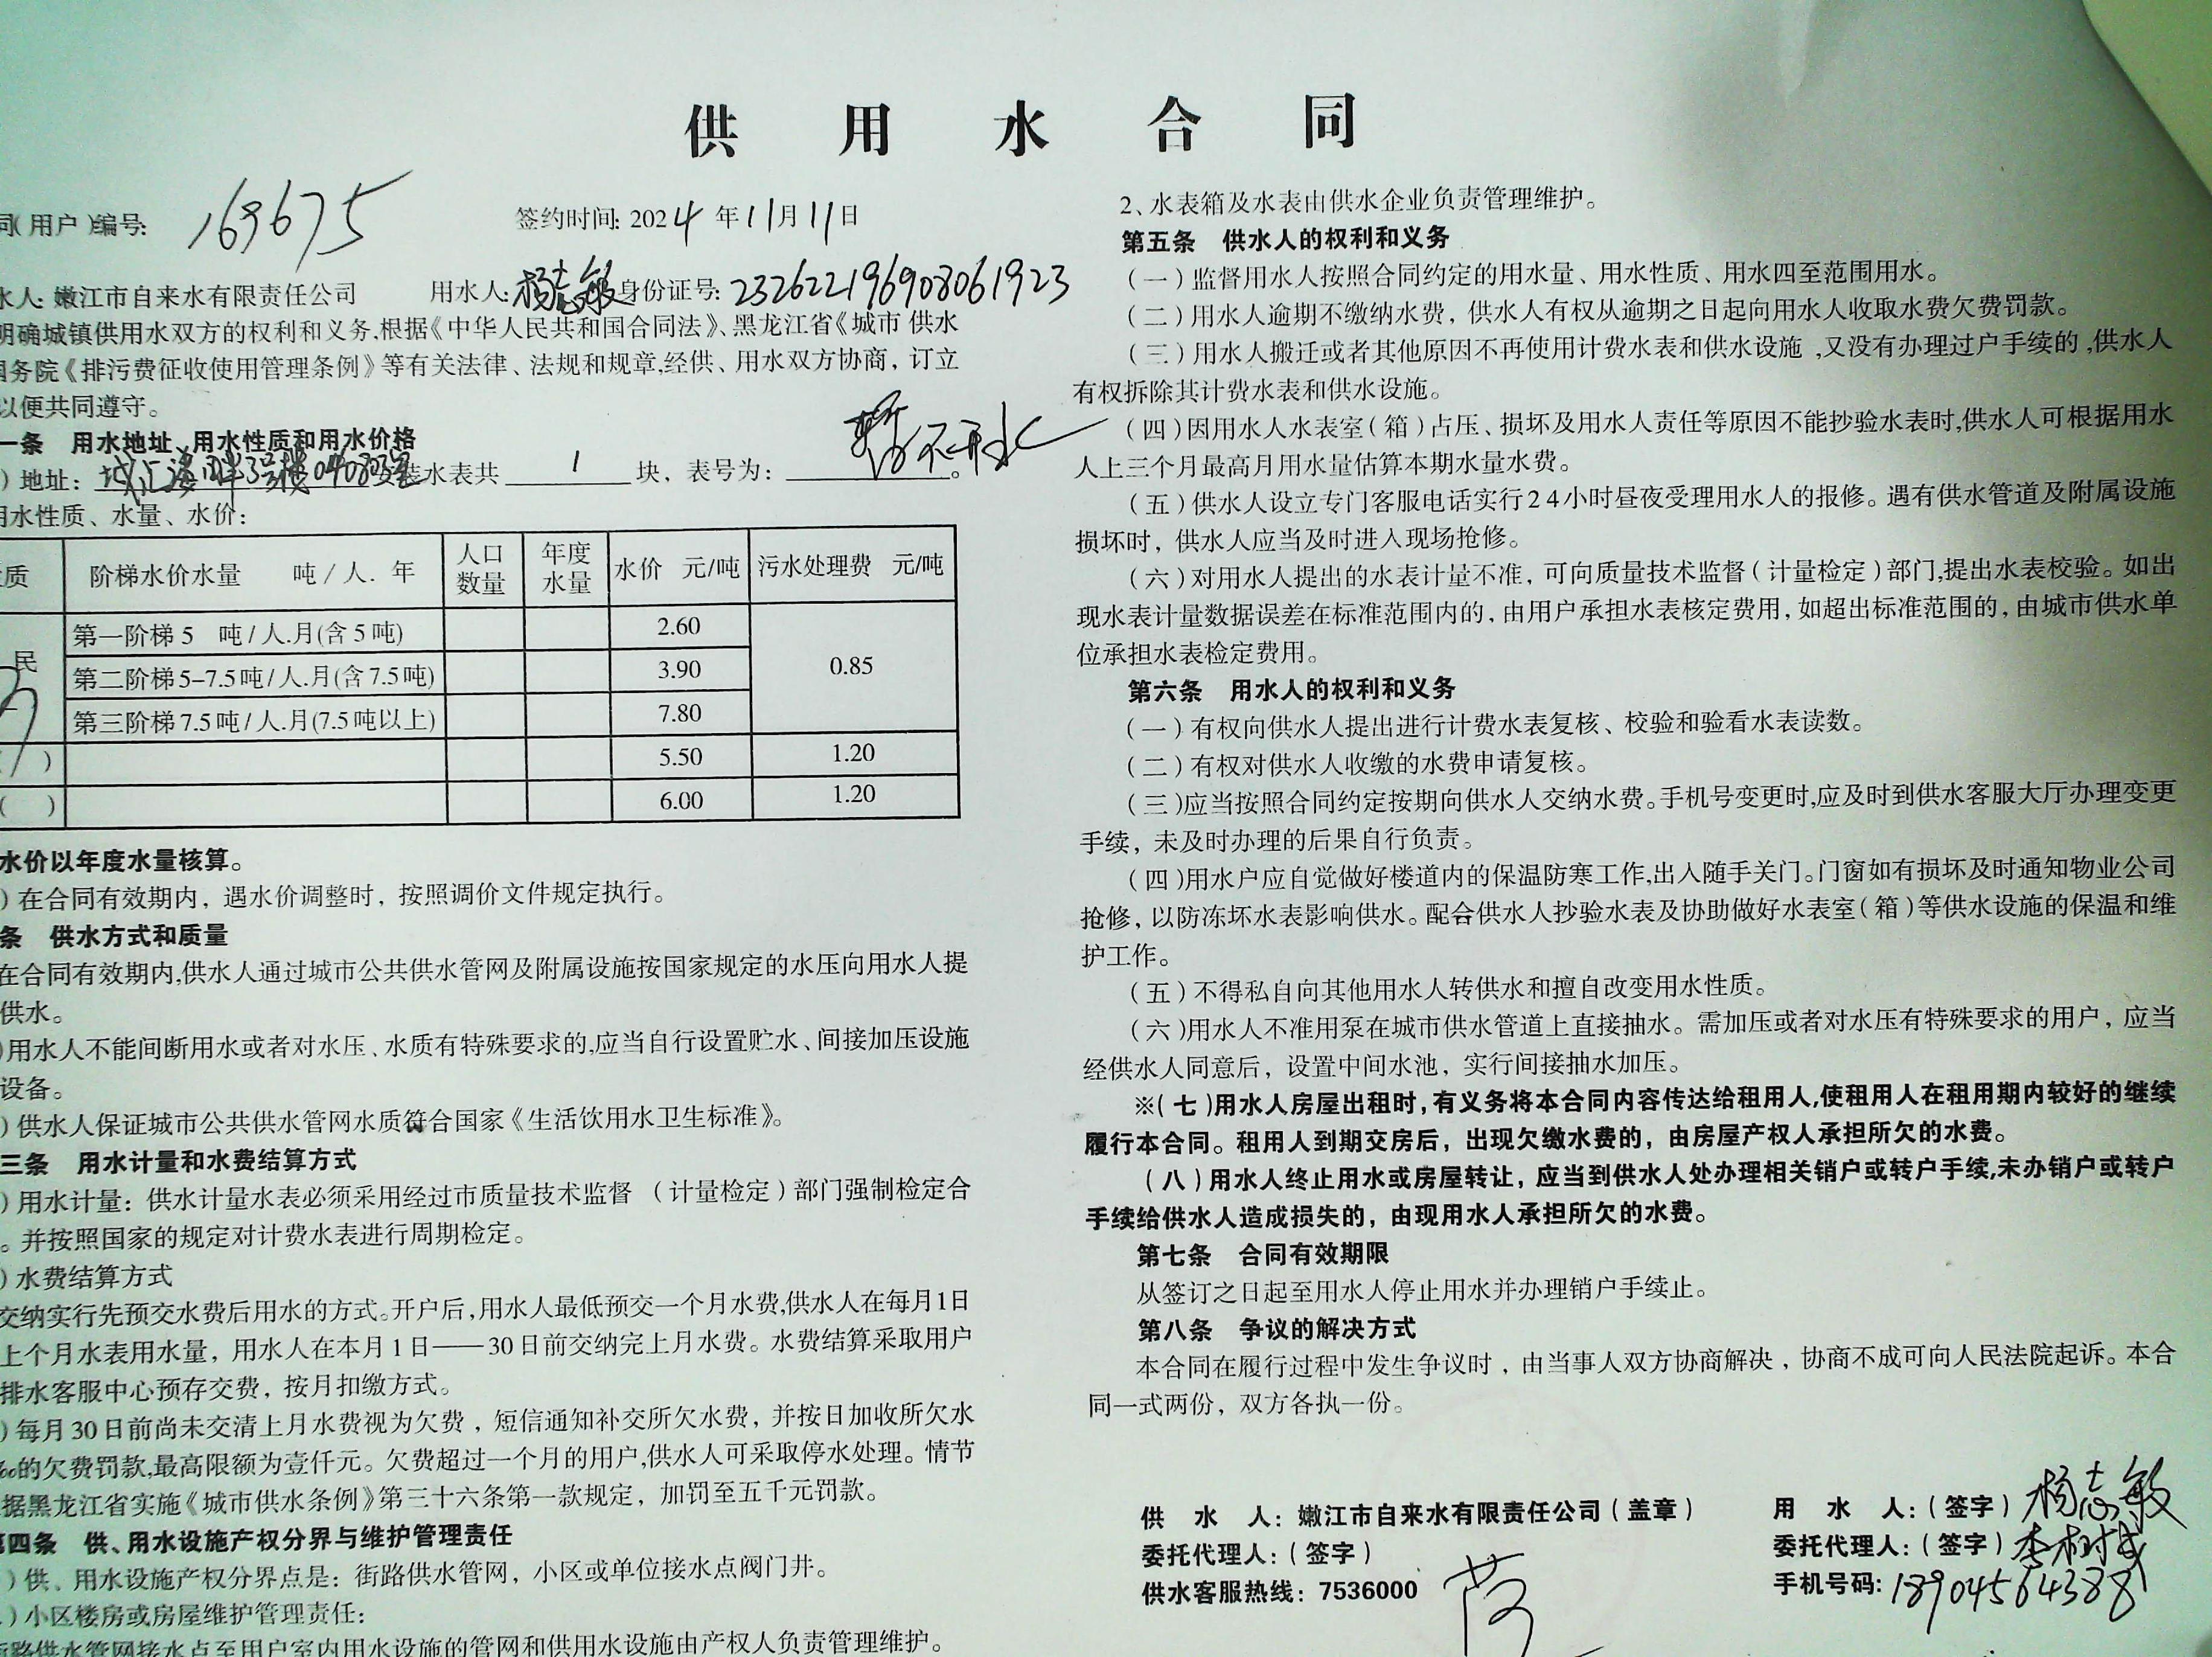 供用水合同
同(用户)编号: 169675 签约时间: 2024年11月11日
水人: 嫩江市自来水有限责任公司 用水人: 杨志敏 身份证号: 232622196908061923
明确城镇供用水双方的权利和义务,根据《中华人民共和国合同法》、黑龙江省《城市 供水
国务院《排污费征收使用管理条例》等有关法律、法规和规章,经供、用水双方协商，订立
以便共同遵守。
一条 用水地址、用水性质和用水价格
)地址: 3号楼040803室 安装水表共 1 块，表号为: 暂不开水。
用水性质、水量、水价:
性质 阶梯水价水量 吨/人.年 人口数量 年度水量 水价 元/吨 污水处理费 元/吨
民 第一阶梯5 吨/人.月(含5吨) 2.60 0.85
第二阶梯5-7.5吨/人.月(含7.5吨) 3.90
第三阶梯7.5吨/人.月(7.5吨以上) 7.80
( ) 5.50 1.20
( ) 6.00 1.20
水价以年度水量核算。
)在合同有效期内，遇水价调整时，按照调价文件规定执行。
条 供水方式和质量
在合同有效期内,供水人通过城市公共供水管网及附属设施按国家规定的水压向用水人提
供水。
)用水人不能间断用水或者对水压、水质有特殊要求的,应当自行设置贮水、间接加压设施
设备。
)供水人保证城市公共供水管网水质符合国家《生活饮用水卫生标准》。
三条 用水计量和水费结算方式
)用水计量: 供水计量水表必须采用经过市质量技术监督 （计量检定)部门强制检定合
。并按照国家的规定对计费水表进行周期检定。
)水费结算方式
交纳实行先预交水费后用水的方式。开户后,用水人最低预交一个月水费,供水人在每月1日
上个月水表用水量，用水人在本月1日——30日前交纳完上月水费。水费结算采取用户
排水客服中心预存交费，按月扣缴方式。
)每月30日前尚未交清上月水费视为欠费，短信通知补交所欠水费，并按日加收所欠水
‰的欠费罚款,最高限额为壹仟元。欠费超过一个月的用户,供水人可采取停水处理。情节
据黑龙江省实施《城市供水条例》第三十六条第一款规定，加罚至五千元罚款。
第四条 供、用水设施产权分界与维护管理责任
)供、用水设施产权分界点是: 街路供水管网，小区或单位接水点阀门井。
)小区楼房或房屋维护管理责任:
街路供水管网接水点至用户室内用水设施的管网和供用水设施由产权人负责管理维护。
2、水表箱及水表由供水企业负责管理维护。
第五条 供水人的权利和义务
（一)监督用水人按照合同约定的用水量、用水性质、用水四至范围用水。
（二)用水人逾期不缴纳水费，供水人有权从逾期之日起向用水人收取水费欠费罚款。
（三)用水人搬迁或者其他原因不再使用计费水表和供水设施,又没有办理过户手续的,供水人
有权拆除其计费水表和供水设施。
（四)因用水人水表室(箱)占压、损坏及用水人责任等原因不能抄验水表时,供水人可根据用水
人上三个月最高月用水量估算本期水量水费。
（五)供水人设立专门客服电话实行24小时昼夜受理用水人的报修。遇有供水管道及附属设施
损坏时，供水人应当及时进入现场抢修。
（六)对用水人提出的水表计量不准，可向质量技术监督(计量检定)部门,提出水表校验。如出
现水表计量数据误差在标准范围内的，由用户承担水表核定费用，如超出标准范围的，由城市供水单
位承担水表检定费用。
第六条 用水人的权利和义务
（一)有权向供水人提出进行计费水表复核、校验和验看水表读数。
（二)有权对供水人收缴的水费申请复核。
（三)应当按照合同约定按期向供水人交纳水费。手机号变更时,应及时到供水客服大厅办理变更
手续，未及时办理的后果自行负责。
（四)用水户应自觉做好楼道内的保温防寒工作,出入随手关门。门窗如有损坏及时通知物业公司
抢修，以防冻坏水表影响供水。配合供水人抄验水表及协助做好水表室(箱)等供水设施的保温和维
护工作。
（五)不得私自向其他用水人转供水和擅自改变用水性质。
（六)用水人不准用泵在城市供水管道上直接抽水。需加压或者对水压有特殊要求的用户，应当
经供水人同意后，设置中间水池，实行间接抽水加压。
※(七)用水人房屋出租时,有义务将本合同内容传达给租用人,使租用人在租用期内较好的继续
履行本合同。租用人到期交房后，出现欠缴水费的，由房屋产权人承担所欠的水费。
（八)用水人终止用水或房屋转让，应当到供水人处办理相关销户或转户手续,未办销户或转户
手续给供水人造成损失的，由现用水人承担所欠的水费。
第七条 合同有效期限
从签订之日起至用水人停止用水并办理销户手续止。
第八条 争议的解决方式
本合同在履行过程中发生争议时，由当事人双方协商解决，协商不成可向人民法院起诉。本合
同一式两份，双方各执一份。
供 水 人: 嫩江市自来水有限责任公司(盖章)
委托代理人:(签字)
供水客服热线: 7536000
用 水 人:(签字) 杨志敏
委托代理人:(签字) 李树成
手机号码: 18904564388